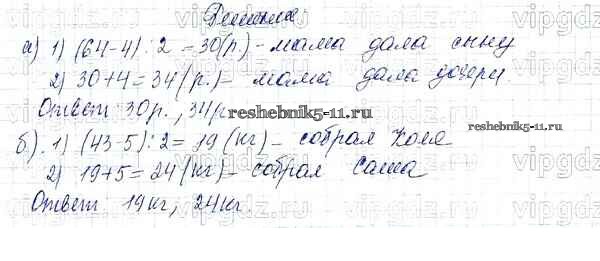 Решение
а) 1) (64-4) : 2 = 30(р.) - мама дала сыну
2) 30+4=34(р.) - мама дала дочери.
Ответ: 30р., 34р
reshebnik5-11.ru
reshebnik5-11.ru
б). 1) (43-5) : 2 = 19 (кг) - собрал Коля
2) 19+5=24(кг) - собрал Саша
Ответ: 19кг, 24кг